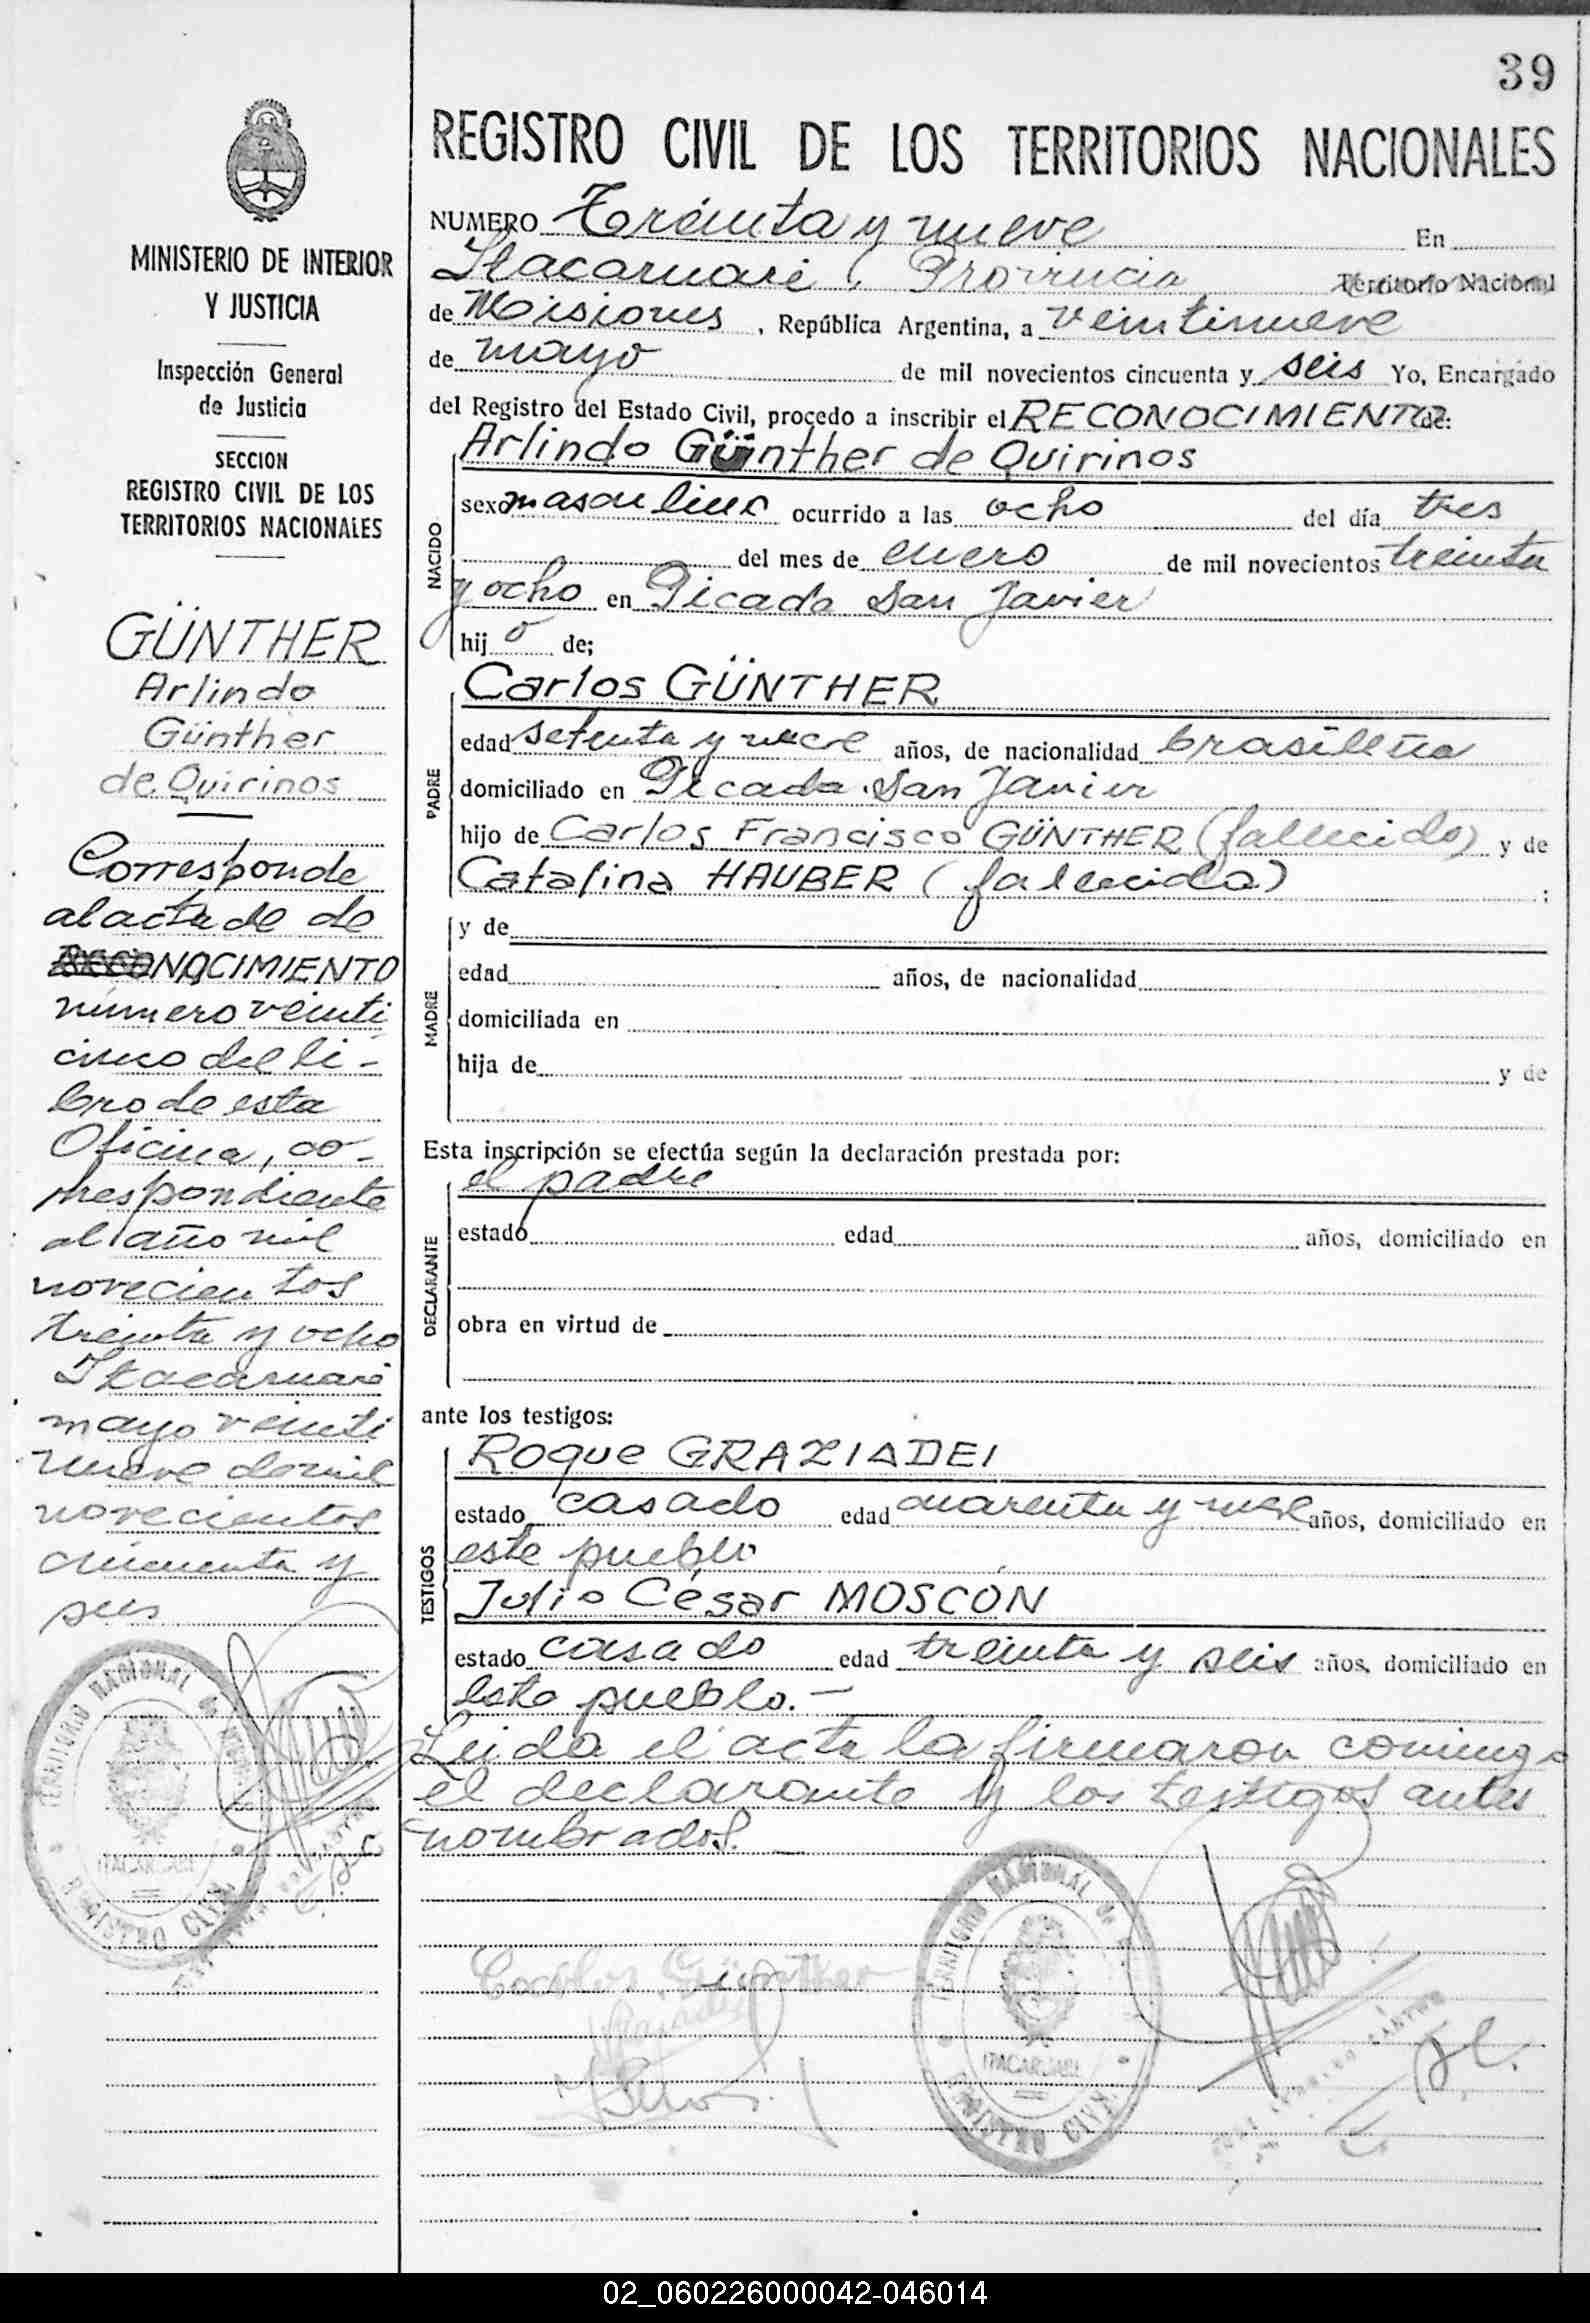 39
MINISTERIO DE INTERIOR
Y JUSTICIA
Inspección General
de Justicia
SECCION
REGISTRO CIVIL DE LOS
TERRITORIOS NACIONALES
GÜNTHER
Arlindo
Günther
de Quirinos
Corresponde
al acta de de
RECONOCIMIENTO
número veinti
cinco del li-
bro de esta
Oficina, co-
rrespondiente
al año mil
novecientos
treinta y ocho
Itacaruaré
mayo veinti
nueve de mil
novecientos
cincuenta y
seis
TERRITORIO NACIONAL de
ITACARUARE
REGISTRO CIVIL
REGISTRO CIVIL DE LOS TERRITORIOS NACIONALES
NUMERO Treinta y nueve En
Itacaruaré, Provincia Territorio Nacional
de Misiones, República Argentina, a veintinueve
de mayo de mil novecientos cincuenta y seis Yo, Encargado
del Registro del Estado Civil, procedo a inscribir el RECONOCIMIENTO de:
Arlindo Günther de Quirinos
NACIDO
sexo masculino ocurrido a las ocho del día tres
del mes de enero de mil novecientos treinta
y ocho en Picada San Javier
hijo de;
PADRE
Carlos GÜNTHER
edad setenta y nueve años, de nacionalidad brasileña
domiciliado en Picada San Javier
hijo de Carlos Francisco GÜNTHER (fallecido) y de
Catalina HAUBER (fallecida) ;
MADRE
y de
edad años, de nacionalidad
domiciliada en
hija de y de
Esta inscripción se efectúa según la declaración prestada por:
DECLARANTE
el padre
estado edad años, domiciliado en
obra en virtud de
ante los testigos:
TESTIGOS
Roque GRAZIADEI
estado casado edad cuarenta y nueve años, domiciliado en
este pueblo
Julio César MOSCON
estado casado edad treinta y seis años, domiciliado en
este pueblo.-
Leida el acta la firmaron conmigo
el declarante y los testigos antes
nombrados.
Carlos Günther
TERRITORIO NACIONAL de
ITACARUARE
REGISTRO CIVIL
02_060226000042-046014